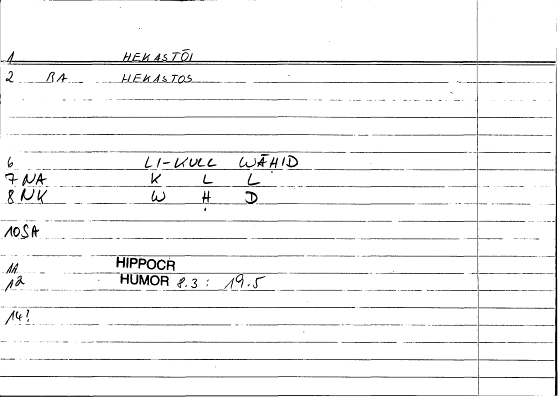 1 HEKASTŌI
2 RA HEKASTOS
6 LI-KULL WĀḤID
7 NA K L L
8 NK W Ḥ D
10 SA
11 HIPPOCR
12 HUMOR 8.3: 19.5
14!